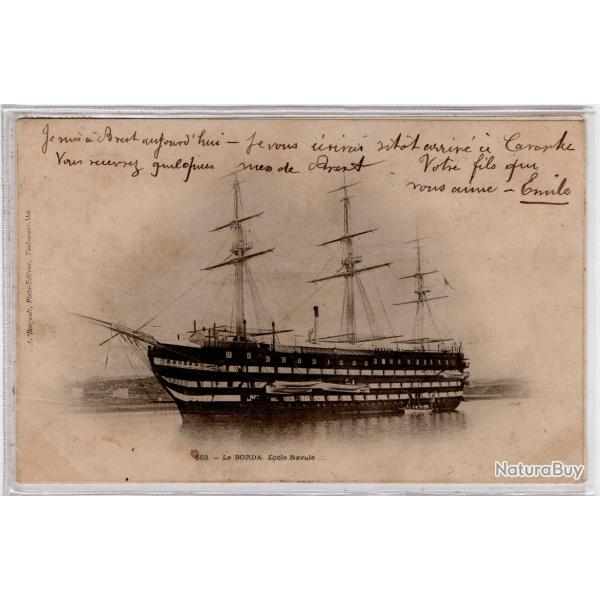 Je suis à Brest aujourd'hui – Je vous écrirai sitôt arrivé à
Vous recevrez quelques vues de Brest – Votre fils qui
vous aime – Emile
A. Bougault, Phot-Editeur, Toulon-sur-Mer
553. – Le BORDA. Ecole Navale
NaturaBuy